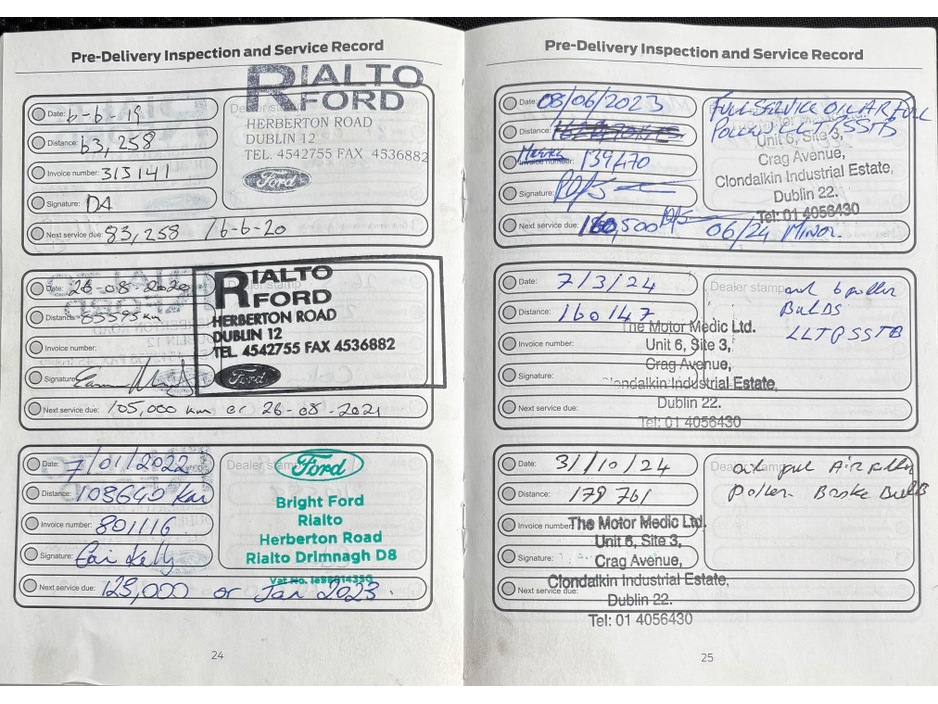 Pre-Delivery Inspection and Service Record
RIALTO
FORD
HERBERTON ROAD
DUBLIN 12
TEL. 4542755 FAX 4536882
Ford
Date: 6-6-19
Distance: 63,258
Invoice number: 313141
Signature: DA
Next service due: 83,258 / 6-6-20
Date: 26-08-2020
Distance: 85595 km
Invoice number:
Signature:
Next service due: 105,000 km or 26-08-2021
Dealer stamp
RIALTO
FORD
HERBERTON ROAD
DUBLIN 12
TEL. 4542755 FAX 4536882
Ford
Date: 7/01/2022
Distance: 108640 km
Invoice number: 801116
Signature:
Next service due: 123,000 or Jan 2023.
Dealer stamp
Ford
Bright Ford
Rialto
Herberton Road
Rialto Drimnagh D8
24
Pre-Delivery Inspection and Service Record
Date: 08/06/2023
Distance:
Invoice number: 139470
Signature:
Next service due: 160,500 06/24 MINOR.
FULL SERVICE OIL AIR FUEL
POLLEN
Unit 6, Site 3,
Crag Avenue,
Clondalkin Industrial Estate,
Dublin 22.
Tel: 01 4056430
Date: 7/3/24
Distance: 160147
Invoice number:
Signature:
Next service due:
Dealer stamp
oil pollen
BULBS
The Motor Medic Ltd.
Unit 6, Site 3,
Crag Avenue,
Clondalkin Industrial Estate,
Dublin 22.
Tel: 01 4056430
Date: 31/10/24
Distance: 179 761
Invoice number:
Signature:
Next service due:
oil Air
pollen Brake Bulb
The Motor Medic Ltd.
Unit 6, Site 3,
Crag Avenue,
Clondalkin Industrial Estate,
Dublin 22.
Tel: 01 4056430
25